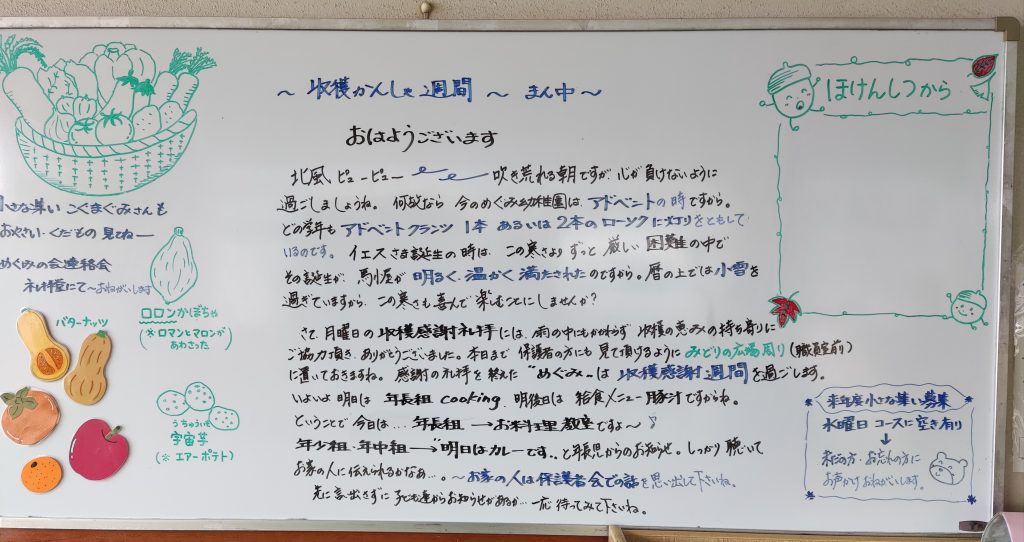 ～ 収穫かんしゃ週間 ～ まん中 ～
おはようございます
北風、ピューピュー 吹き荒れる朝ですが 心が負けないように
過ごしましょうね。 何故なら 今のめぐみ幼稚園は、アドベントの時ですから。
どの学年も アドベントクランツ 1本 あるいは 2本のローソクに灯りをともして
いるのです。 イエスさま誕生の時は、この寒さより ずっと 厳しい 困難の中で
その誕生が、馬小屋が 明るく、温かく 満たされたのですから。暦の上では 小雪を
過ぎていますから、この寒さも喜んで 楽しむことにしませんか？
さて、月曜日の 収穫感謝礼拝には、雨の中にもかかわらず 収穫の恵みの持ち寄りに
ご協力頂き、ありがとうございました。本日まで 保護者の方にも 見て頂けるように みどりの広場周り (職員室前)
に置いておきますね。 感謝の礼拝を 終えた "めぐみ"は 収穫感謝週間を過ごします。
いよいよ 明日は 年長組 cooking、明後日は 給食メニュー 豚汁ですからね。
ということで 今日は… 年長組 →お料理教室ですよ～♪
年少組、年中組 →"明日はカレーです"。と年長児からのお知らせ。しっかり 聴いて
お家の人に 伝えられるかなぁ…。～お家の人は 保護者会での話を思い出して下さいね。
先に言い出さずに 子ども達からお知らせがあるか… 一応 待ってみて下さいね。
小さな集い こぐまぐみさんも
おやさい・くだもの 見てねー
めぐみの会連絡会
礼拝堂にて～おねがいします
バターナッツ
ロロンかぼちゃ
(※ロマンとマロンが
あわさった)
うちゅういも
宇宙芋
(※ エアーポテト)
ほけんしつから
来年度 小さな集い 募集
水曜日 コースに 空き有り
↓
未だの方・お忘れの方に
お声かけ おねがいします。